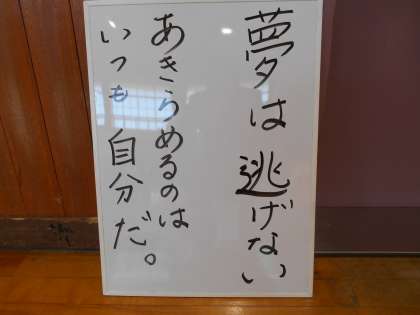 夢は逃げない
あきらめるのは
いつも自分だ。